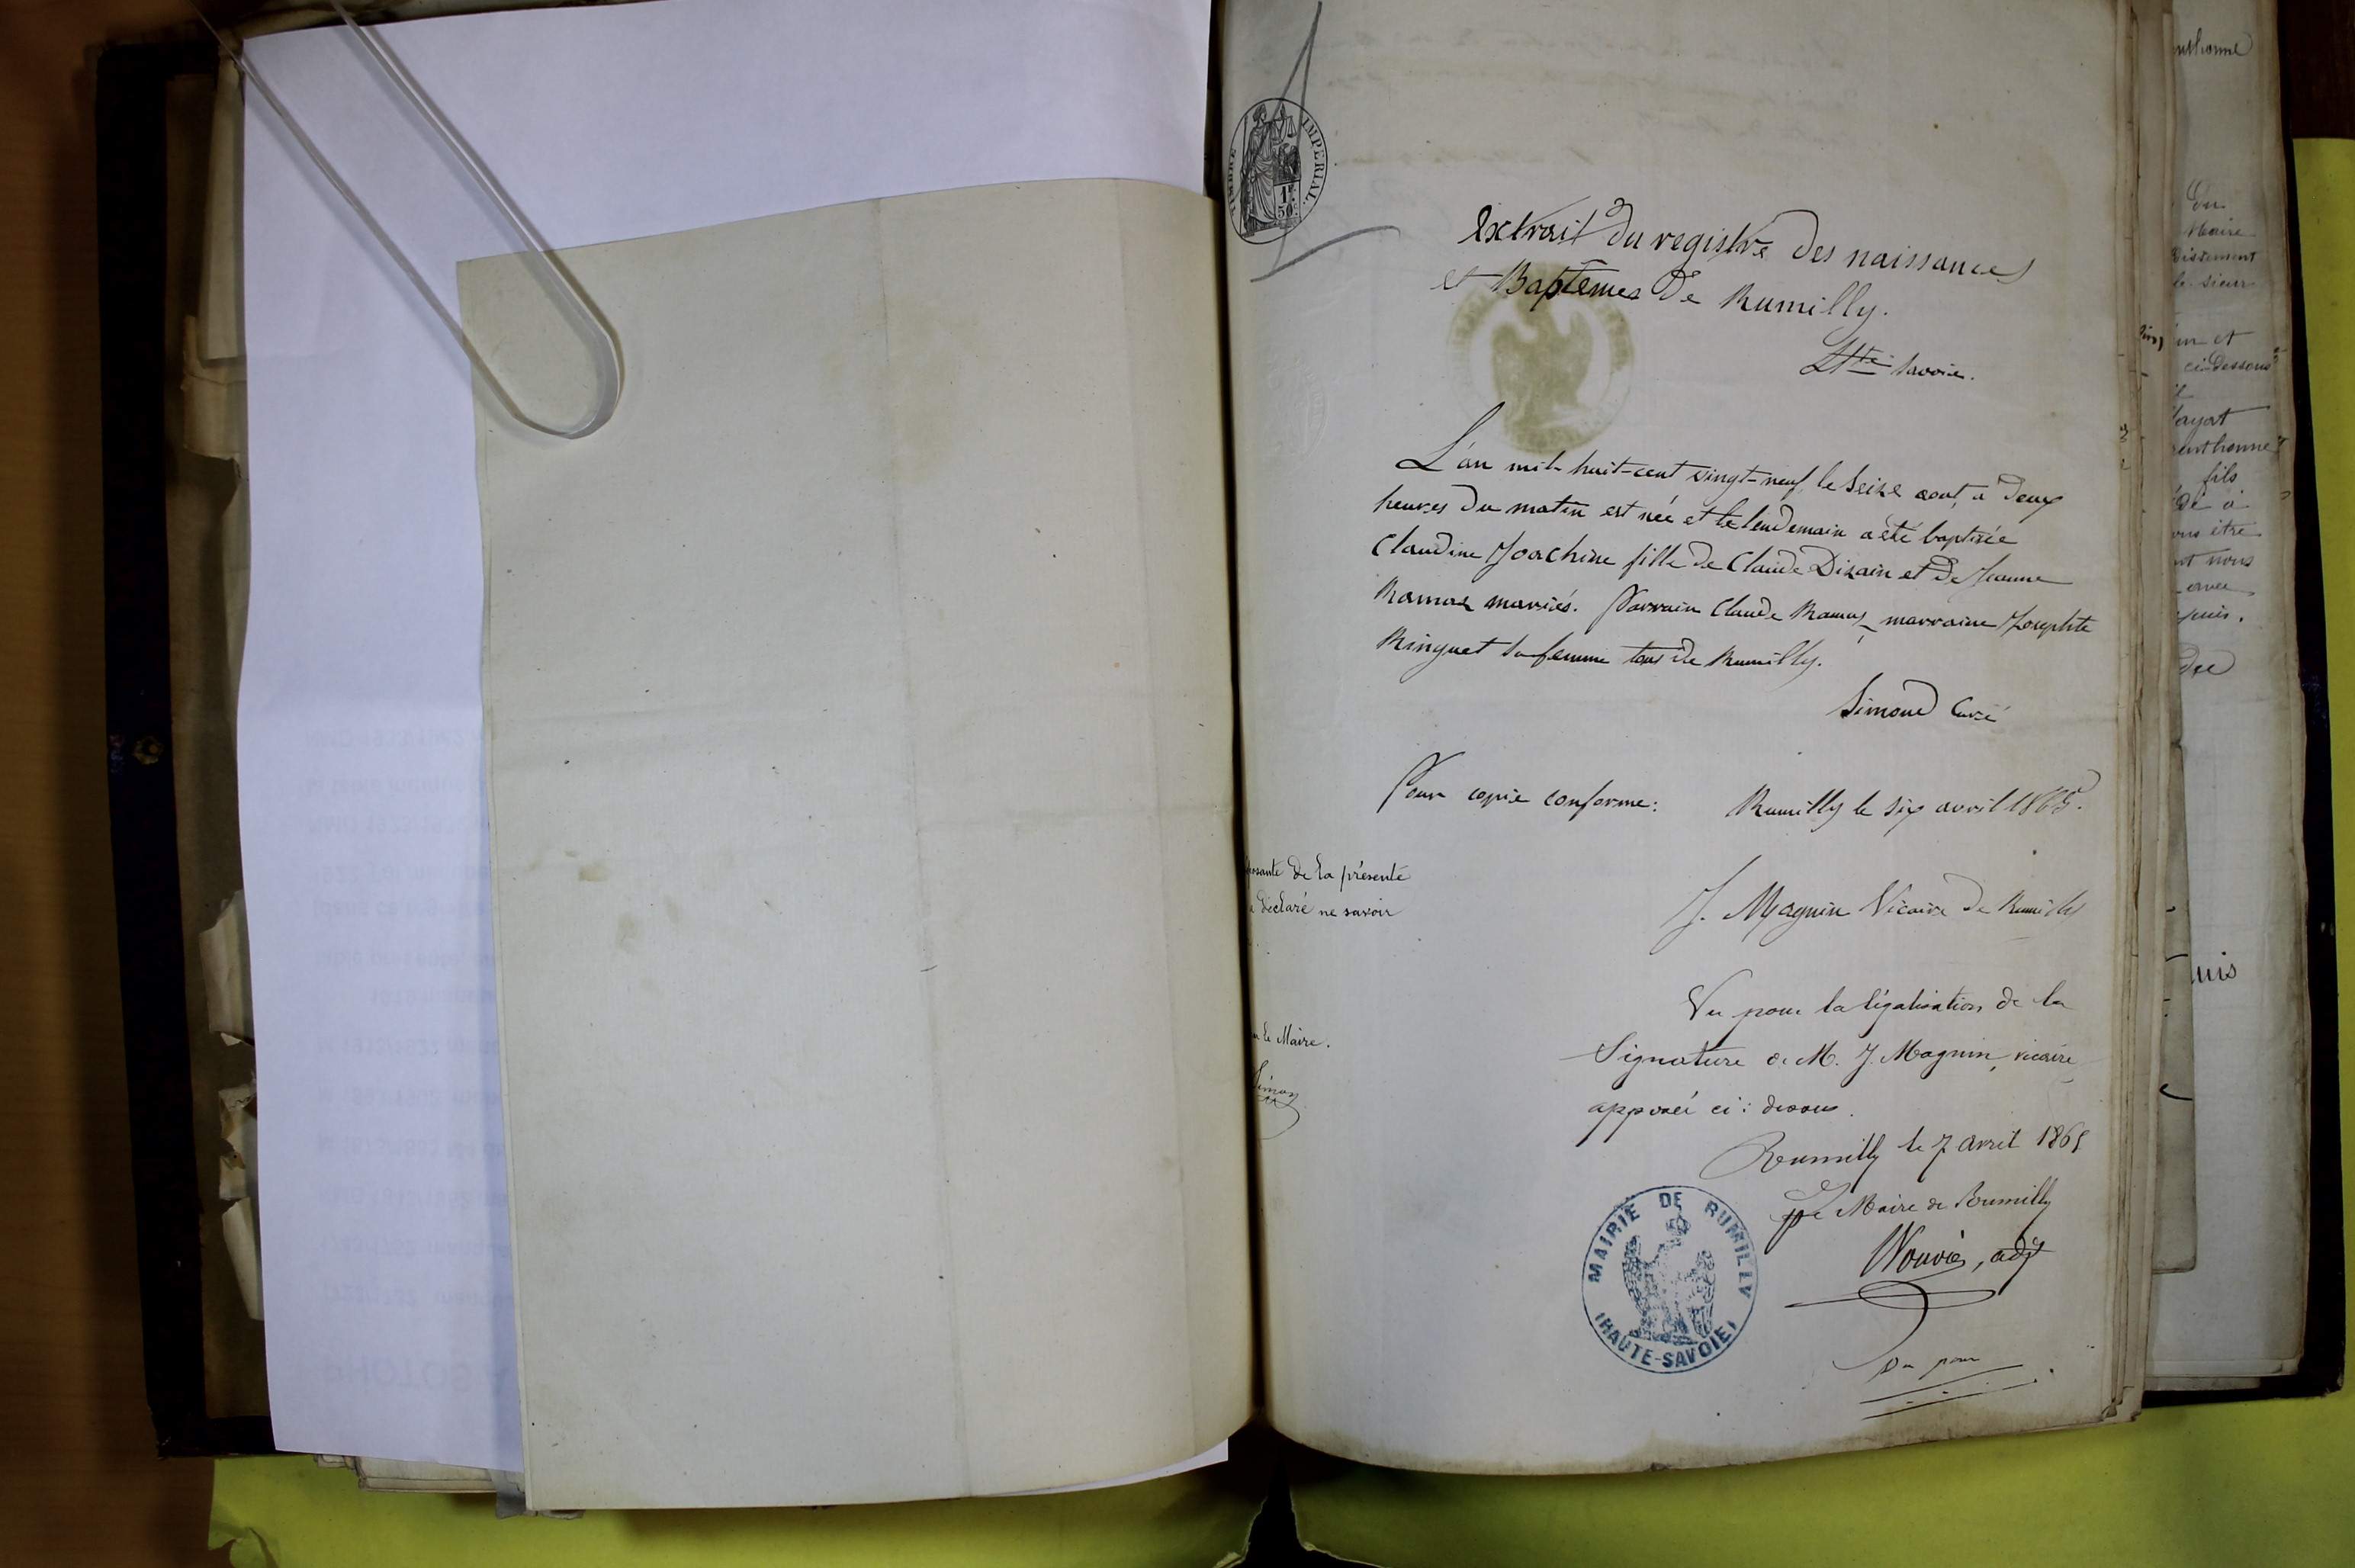 TIMBRE IMPERIAL
1F. 50c.
Extrait du registre des naissances
et Baptêmes de Rumilly.
Hte Savoie.
L'an mil huit-cent vingt-neuf, le seize aout, a deux
heures du matin est née et le lendemain a été baptisée
Claudine Joachine fille de Claude Dizain et de Jeanne
Ramaz mariés. Parrain Claude Ramaz, marraine Josephte
Ringuet sa femme tous de Rumilly.
Simond Curé
Pour copie conforme: Rumilly le six avril 1865.
J. Magnin Vicaire de Rumilly
Vu pour la légalisation de la
Signature de M. J. Magnin, vicaire
apposée ci: dessus.
Rumilly le 7 avril 1865
Pr le Maire de Rumilly
adjt
MAIRIE DE RUMILLY
(HAUTE-SAVOIE)
de la présente
a déclaré ne savoir
le Maire.
Du
Maire
le sieur
in et
ci-dessous
fils
dé à
ous être
nt nous
avec